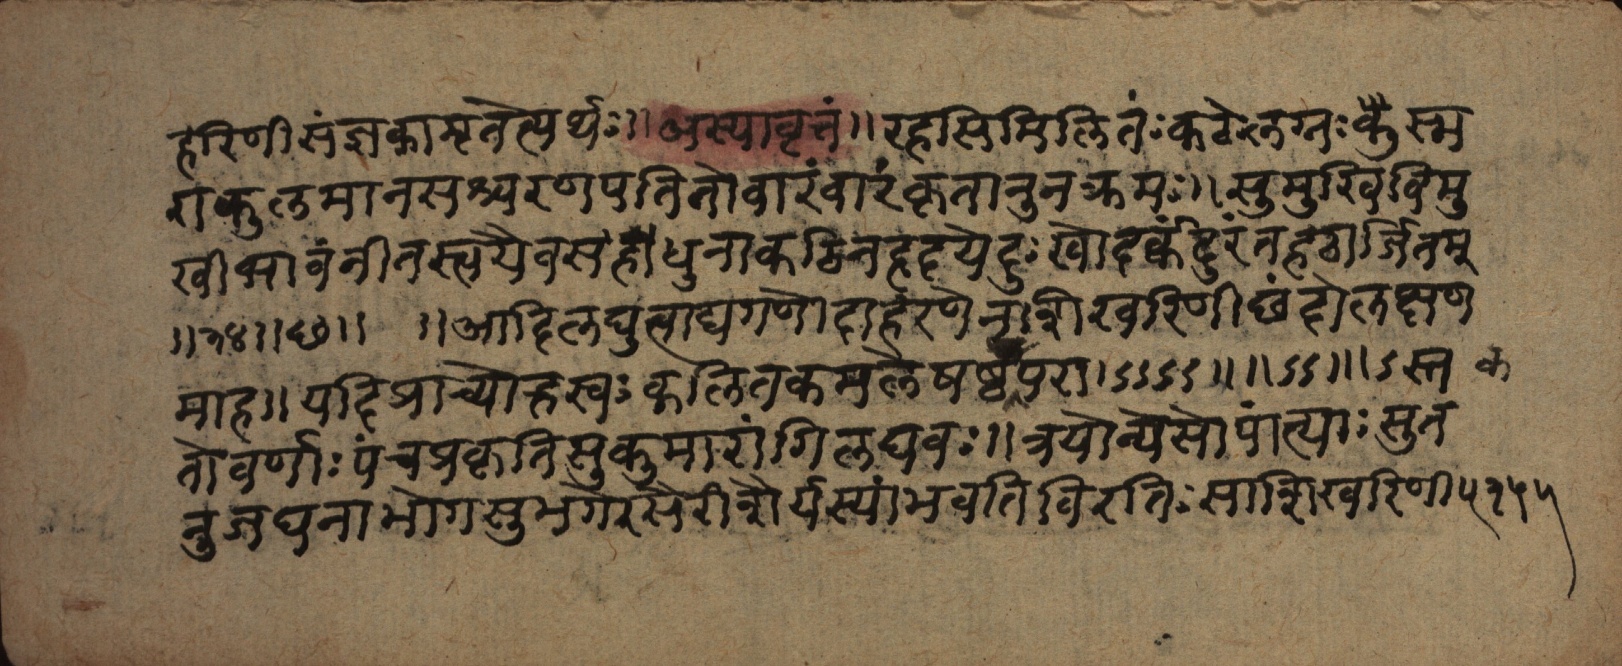 हरिणीसंज्ञकामृतेत्यर्थः॥ अस्यावृत्तं॥ रहसिमिलितंः कंठेलग्नः स्म
राकुलमानसश्चरणपतितोवारंवारंकृतानुनयक्रमः॥ सुमुखिविमु
खीभावंनीतस्त्वयैवसहाधुनाकठिनहृदयेदुःखोदर्कंदुरंतहठार्जितम्
॥१४॥छ॥ ॥आदिलघुत्वाद्यगणोदाहरणेनशिखरिणीछंदोलक्षण
माह॥ यदिप्राच्योह्रस्वः कलितकमलेषष्ठपरा।ऽऽऽऽऽ॥।॥ऽऽ॥।ऽस्त क
तोवर्णाः पंचप्रकृतिसुकुमारांगिलघवः॥ त्रयोन्येसोपांत्याः सुत
नुजघनाभोगसुभगेरसैरीशैर्यस्यांभवतिविरतिः साशिखरिणी